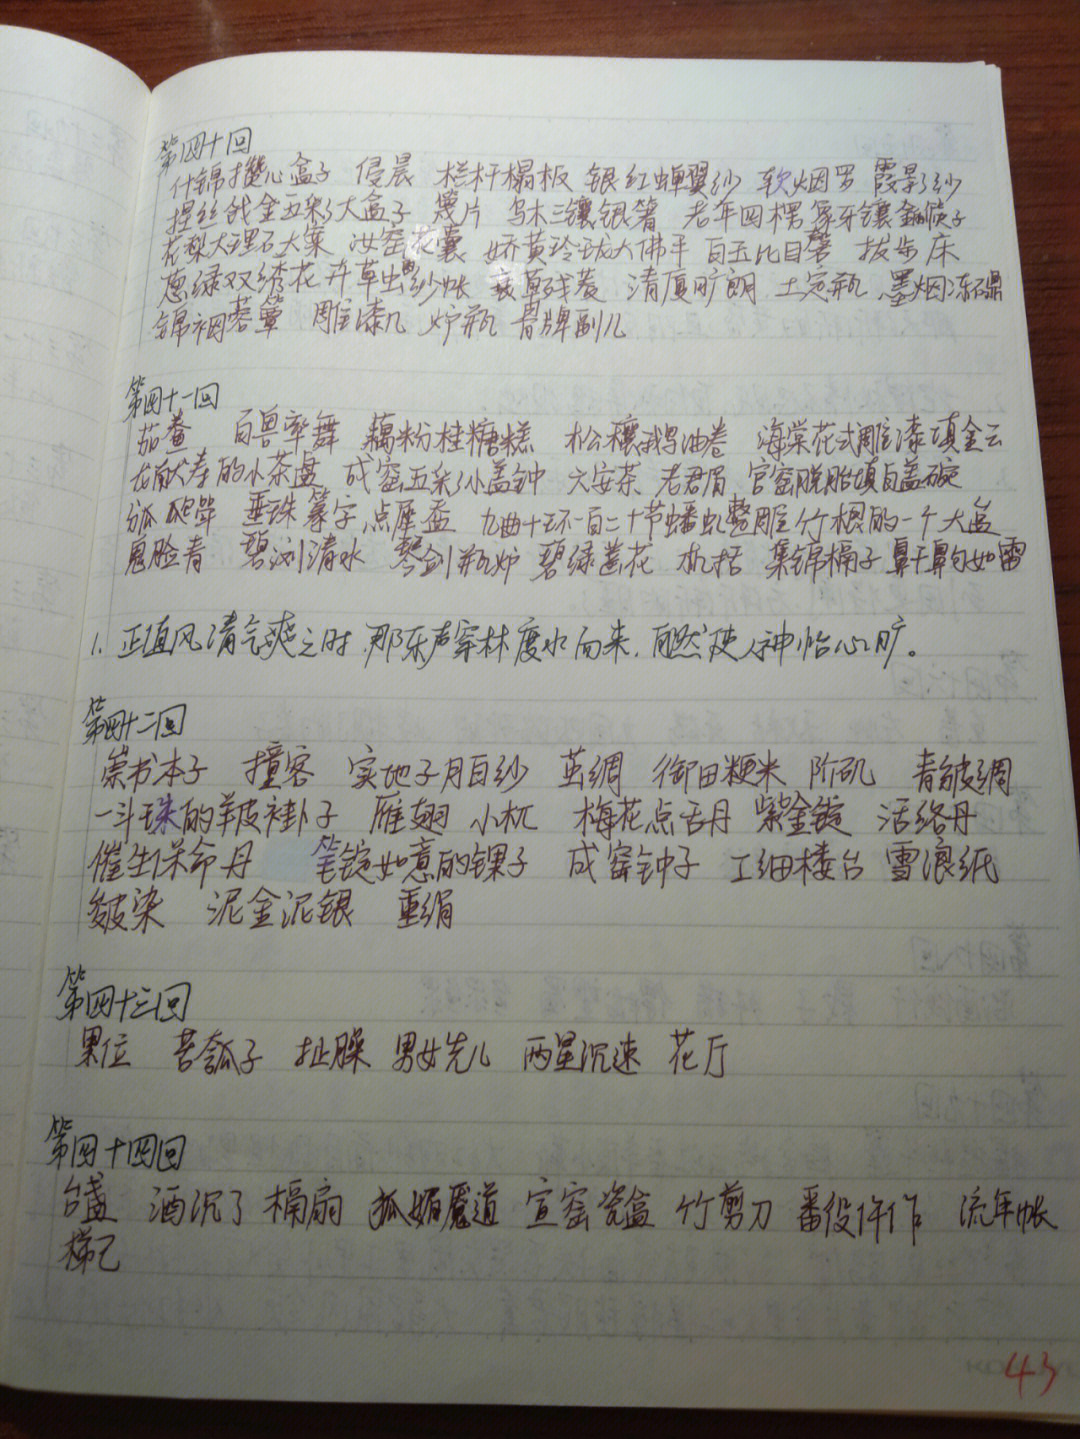 第四十回
什锦攒心盒子 侵晨 栏杆榻板 银红蝉翼纱 软烟罗 霞影纱
捏丝戗金五彩大盒子 篾片 乌木三镶银箸 老年四楞象牙镶金筷子
花梨大理石大案 汝窑花囊 娇黄玲珑大佛手 白玉比目磬 拔步床
葱绿双绣花卉草虫纱帐 衰草残菱 清厦旷朗 土定瓶 墨烟冻石鼎
锦裀蓉簟 雕漆几 炉瓶 骨牌副儿
第四十一回
茄鲞 百兽率舞 藕粉桂糖糕 松穰鹅油卷 海棠花式雕漆填金云
龙献寿的小茶盘 成窑五彩小盖钟 六安茶 老君眉 官窑脱胎填白盖碗
瓟斝 垂珠篆字 点犀䀉 九曲十环一百二十节蟠虬整雕竹根的一个大盒
鬼脸青 碧浏清水 琴剑瓶炉 碧绿莲花 机括 集锦槅子 鼾齁如雷
1. 正值风清气爽之时,那乐声穿林度水而来,自然使人神怡心旷。
第四十二回
祟书本子 撞客 实地子月白纱 茧绸 御田粳米 阶矶 青皱绸
一斗珠的羊皮褂子 雁翅 小杌 梅花点舌丹 紫金锭 活络丹
催生保命丹 笔锭如意的锞子 成窑钟子 工细楼台 雪浪纸
皴染 泥金泥银 重绢
第四十三回
果位 苦瓠子 扯臊 男女先儿 两星沉速 花厅
第四十四回
台盏 酒沉了 槅扇 狐媚魇道 宣窑瓷盒 竹剪刀 番役仵作 流年帐
梯己
43